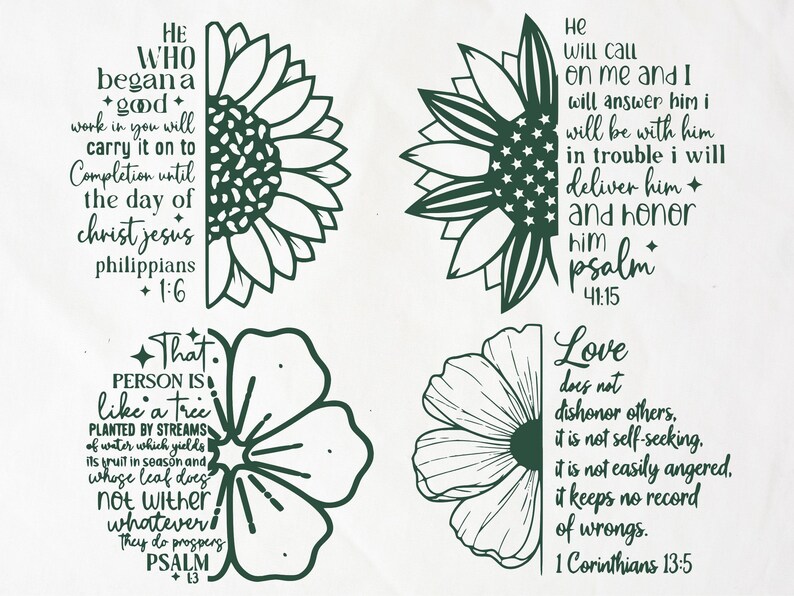 HE
WHO
began a
good
work in you will
carry it on to
Completion until
the day of
christ jesus
philippians
1:6
HE
will call
on me and I
will answer him i
will be with him
in trouble i will
deliver him
and honor
him
psalm
41:15
That
PERSON IS
like a tree
PLANTED BY STREAMS
of water which yields
its fruit in season and
whose leaf does
not wither
whatever
they do prospers
PSALM
1:3
Love
does not
dishonor others,
it is not self-seeking,
it is not easily angered,
it keeps no record
of wrongs.
1 Corinthians 13:5